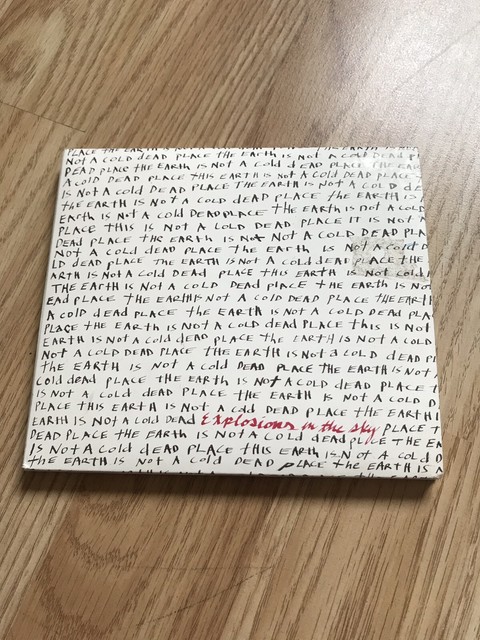 PLACE THE EARTH IS NOT A COLD DEAD PLACE THE EARTH IS
NOT A COLD DEAD PLACE THE EARTH IS NOT A COLD DEAD P
DEAD PLACE THE EARTH IS NOT A COLD DEAD PLACE THE EAR
A COLD DEAD PLACE THIS EARTH IS NOT A COLD DEAD PLACE
IS NOT A COLD DEAD PLACE THE EARTH IS NOT A COLD DE
THE EARTH IS NOT A COLD DEAD PLACE THE EARTH IS NOT
EARTH IS NOT A COLD DEAD PLACE THE EARTH IS NOT A COL
PLACE THIS IS NOT A COLD DEAD PLACE IT IS NOT A
DEAD PLACE THE EARTH IS NOT A COLD DEAD P
NOT A COLD DEAD PLACE THE EARTH IS NOT A COLD D
LD DEAD PLACE THE EARTH IS NOT A COLD DEAD PLACE THE
ARTH IS NOT A COLD DEAD PLACE THIS EARTH IS NOT COLD
THE EARTH IS NOT A COLD DEAD PLACE THE EARTH IS NOT
EAD PLACE THE EARTH IS NOT A COLD DEAD PLACE THE EARTH
A COLD DEAD PLACE THE EARTH IS NOT A COLD DEAD PLA
PLACE THE EARTH IS NOT A COLD DEAD PLACE THIS IS NOT
EARTH IS NOT A COLD DEAD PLACE THE EARTH IS NOT A COLD
NOT A COLD DEAD PLACE THE EARTH IS NOT A COLD DEAD P
THE EARTH IS NOT A COLD DEAD PLACE THE EARTH IS NOT
COLD DEAD PLACE THE EARTH IS NOT A COLD DEAD PLACE T
IS NOT A COLD DEAD PLACE THE EARTH IS NOT A COLD
PLACE THIS EARTH IS NOT A COLD DEAD PLACE THE EARTH I
EARTH IS NOT A COLD DEAD Explosions in the sky PLACE T
DEAD PLACE THE EARTH IS NOT A COLD DEAD PLACE THE EA
IS NOT A COLD DEAD PLACE THIS EARTH IS NOT A COLD D
THE EARTH IS NOT A COLD DEAD PLACE THE EARTH IS NOT A